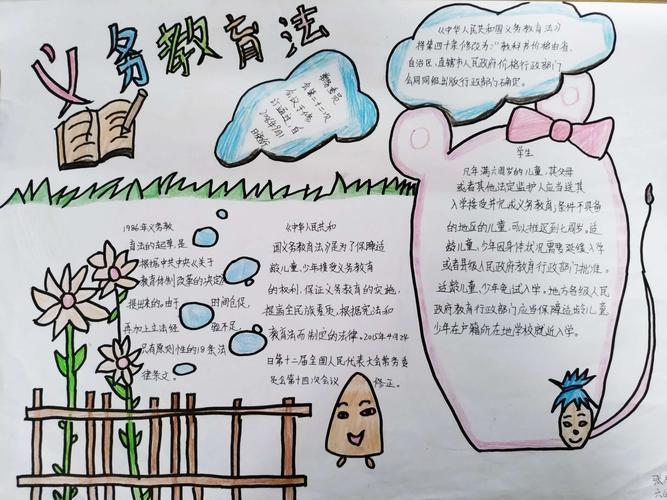 义务教育法
《中华人民共和国义务教育法》
将第四十条修改为:"教科书价格由省、
自治区、直辖市人民政府价格行政部门
会同同级出版行政部门确定。
常务委员
会第二十二次
会议于修
订通过,自
学生
凡年满六周岁的儿童,其父母
或者其他法定监护人应当送其
入学接受并完成义务教育;条件不具备
的地区的儿童,可以推迟到七周岁。适
龄儿童、少年因身体状况需要延缓入学
或者县级人民政府教育行政部门批准。
适龄儿童、少年免试入学。地方各级人民
政府教育行政部门应当保障适龄儿童
少年在户籍所在地学校就近入学。
1986年义务教
育法的起草,是
根据中共中央《关于
教育体制改革的决定》
提出来的。由于时间仓促,
再加上立法经验不足,
只有原则性的18条法
律条文。
《中华人民共和
国义务教育法》是为了保障适
龄儿童、少年接受义务教育
的权利,保证义务教育的实施,
提高全民族素质,根据宪法和
教育法而制定的法律。2015年4月24
日第十二届全国人民代表大会常务委
员会第十四次会议修正。